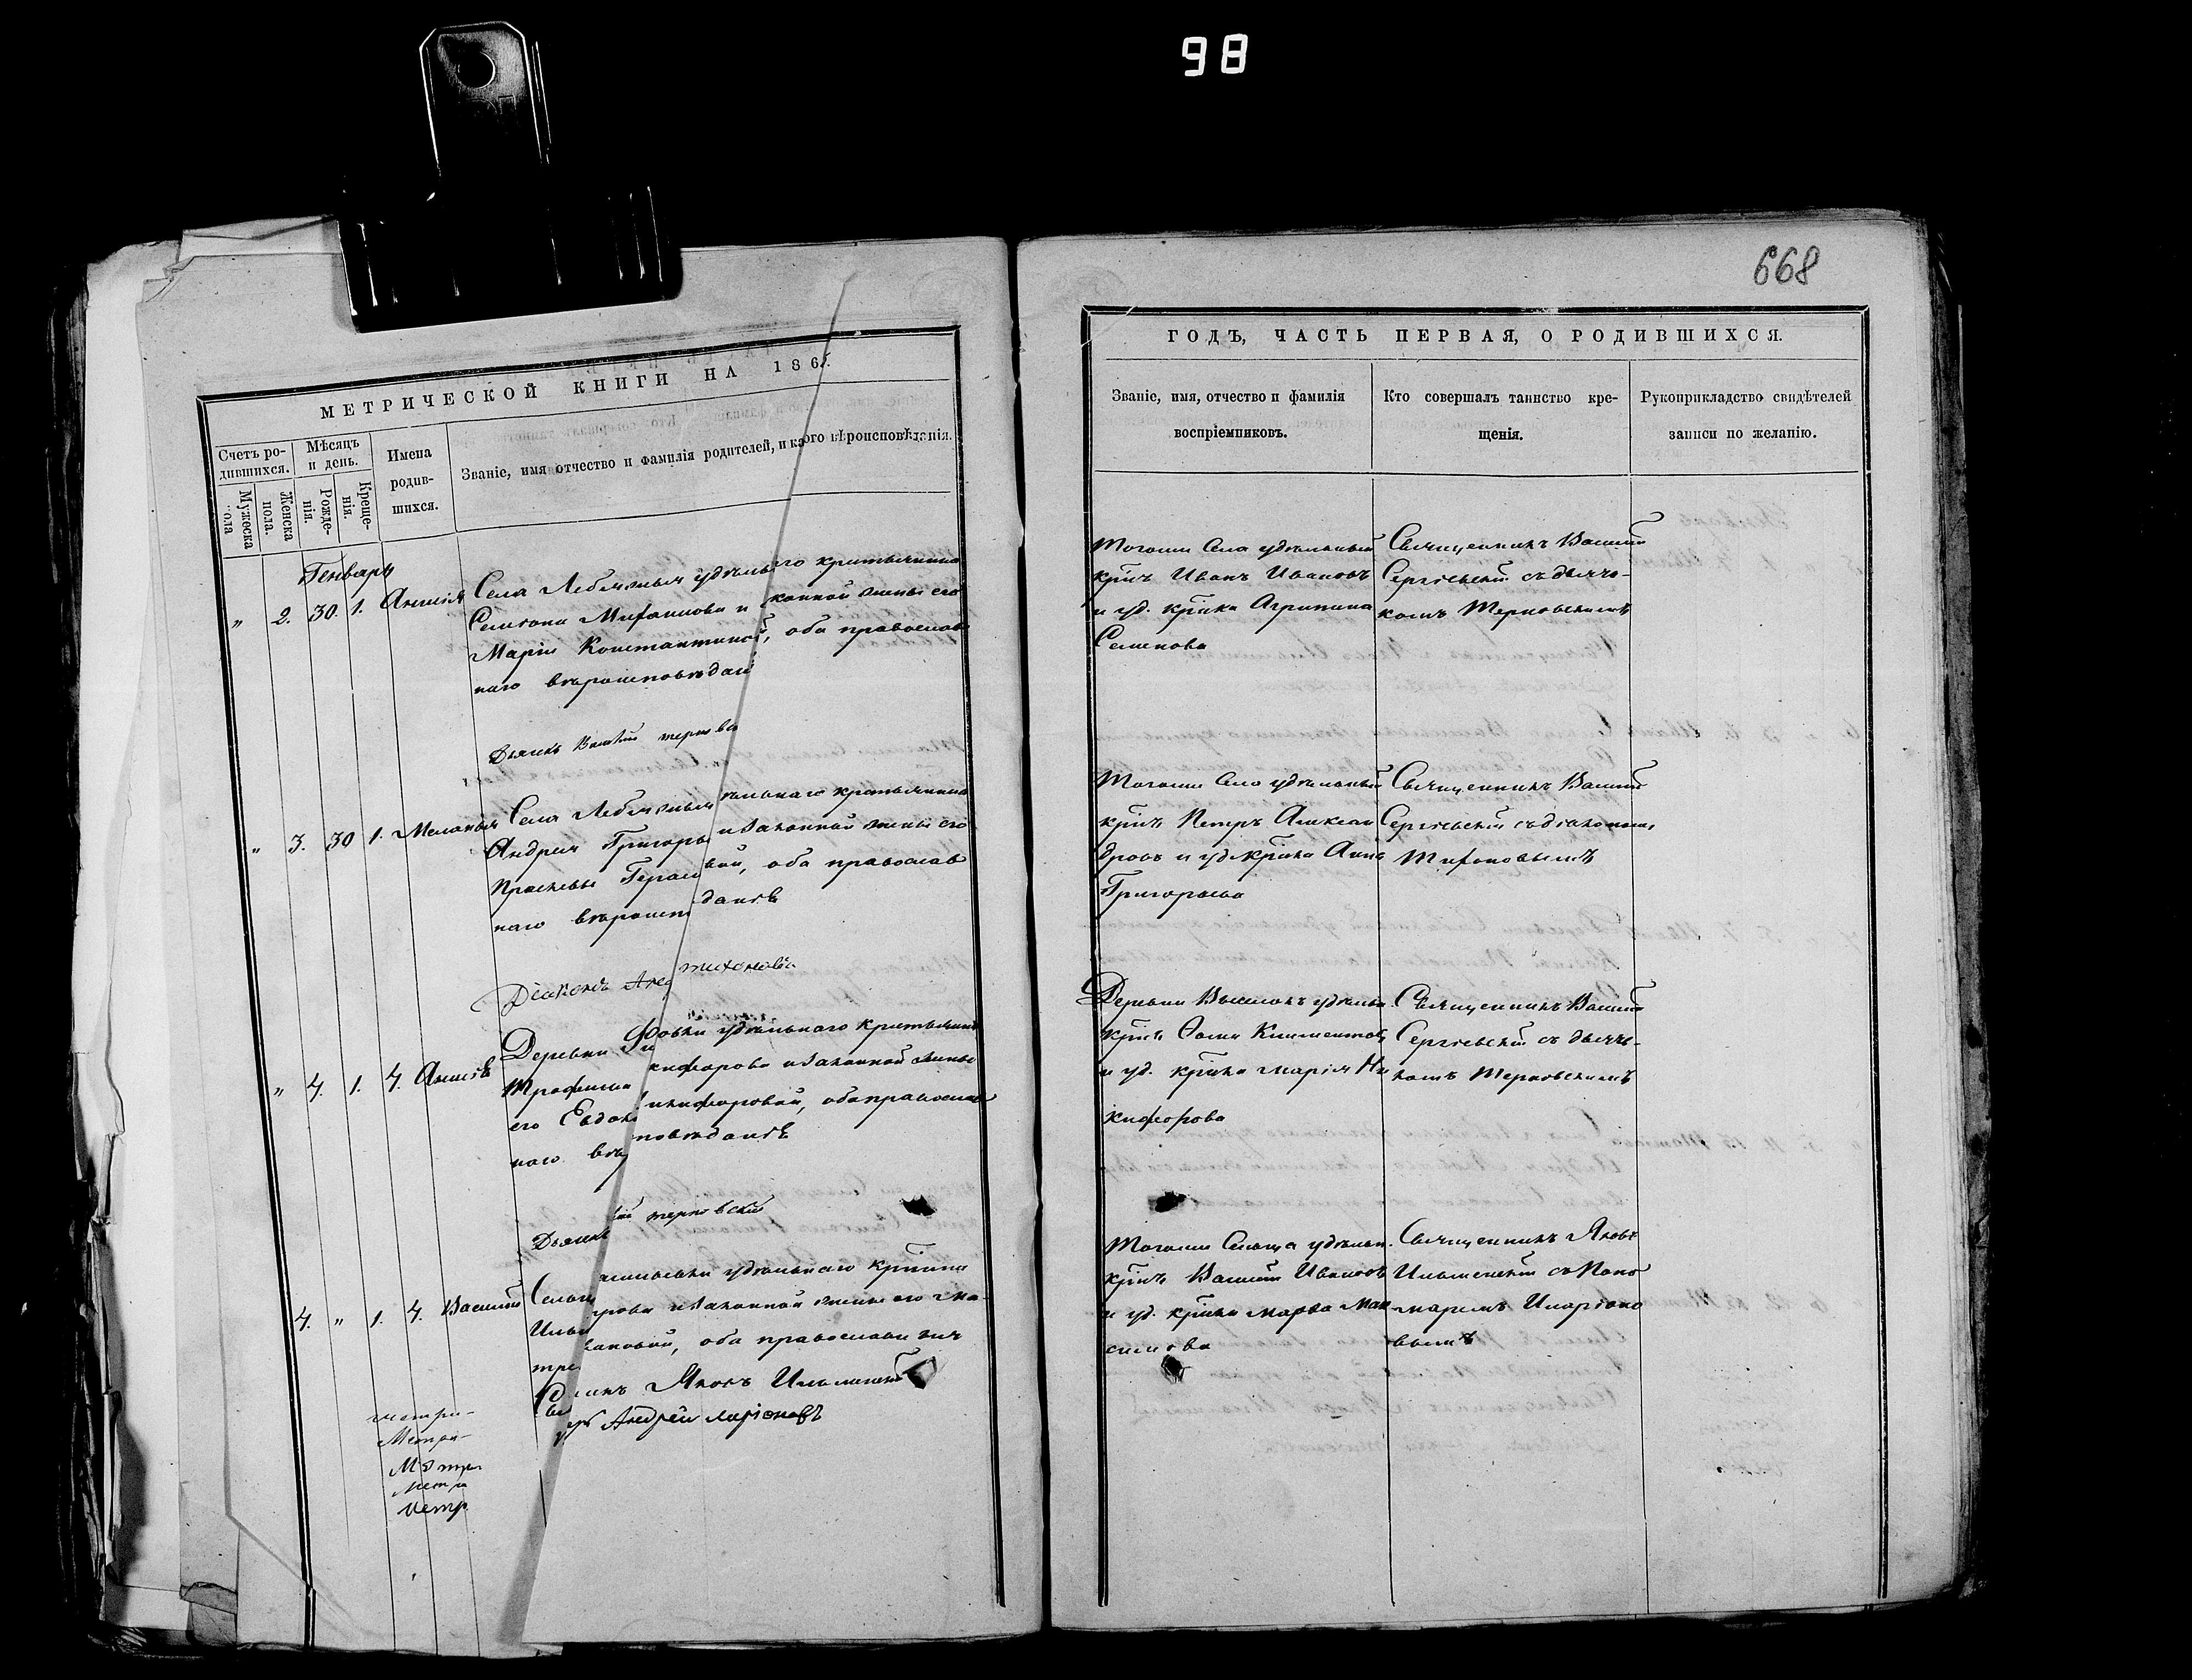 98
668
МЕТРИЧЕСКОЙ КНИГИ НА 186
Счетъ ро-
дившихся.
Мужеска
пола
Женска
пола.
Мѣсяцъ
и день.
Рожде-
нія.
Креще-
нія.
Имена
родив-
шихся.
Званіе, имя отчество и фамилія родителей, и ка ого вѣроисповѣданія.
Генварь
" 2. 30. 1. Анисія Села Лебяжья удѣль го крестьянина
Семіона и конной жены его
Маріи Константиной, оба православ
наго вѣроисповѣдані
Дьячекъ Василій терновс
" 3. 30 1. Меланья Села Лебяжья ѣльнаго крестьянина
Андрея Григорь и законной жены его
Герасі вой, оба православ
наго вѣроисп даніѣ
Діаконъ Анд тихоновъ
" 4. 1. 4. Анисія Деревни овки удѣльнаго крестьянина
Трофима кифорова и законной жены
его Евдок икифоровой, оба православ
наго вѣр повѣданіѣ
Дьячек ій терновскій
4. " 1. 4. Василій Сельц удѣльнаго крѣнина
Ильи рова и законной жены его Ма-
тре вановой, оба православн
Св никъ Яковъ Ильминскій
рь Андрей ларіоновъ
метри-
Метри-
Метри
метри
Метр
ГОДЪ, ЧАСТЬ ПЕРВАЯ, О РОДИВШИХСЯ.
Званіе, имя, отчество и фамилія
воспріемниковъ.
Кто совершалъ таинство кре-
щенія.
Рукоприкладство свидѣтелей
записи по желанію.
Тогоже Села удѣльный
крінъ Иванъ Ивановъ
и уд. крѣнка Агрипина
Семенова
Священникъ Василій
Сергіевскій съ дьячь-
комъ Терновскимъ
Тогоже Села удѣльный
крінъ Петръ Алексан
дровъ и уд. крѣнка Анна
Григорьева
Священникъ Василій
Сергіевскій съ діакономъ
Тихоновымъ
Деревни Выселокъ удѣльн.
крінъ Ѳома Климентов
и уд. крѣнка Марія Ни
кифорова
Священникъ Василій
Сергіевскій съ дьячь-
комъ Терновскимъ
Тогоже Сельца удѣльн.
крінъ Василій Ивановъ
и уд. крѣнка Марѳа Мак
симова
Священникъ Яковъ
Ильминскій съ Поно
маремъ Иларіоно
вымъ